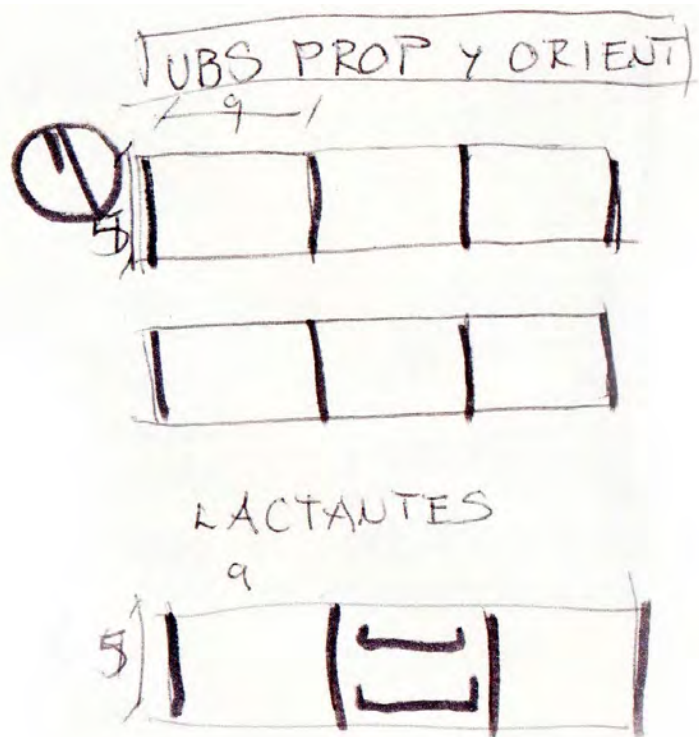 UBS PROP Y ORIENT
9
5
LACTANTES
9
5